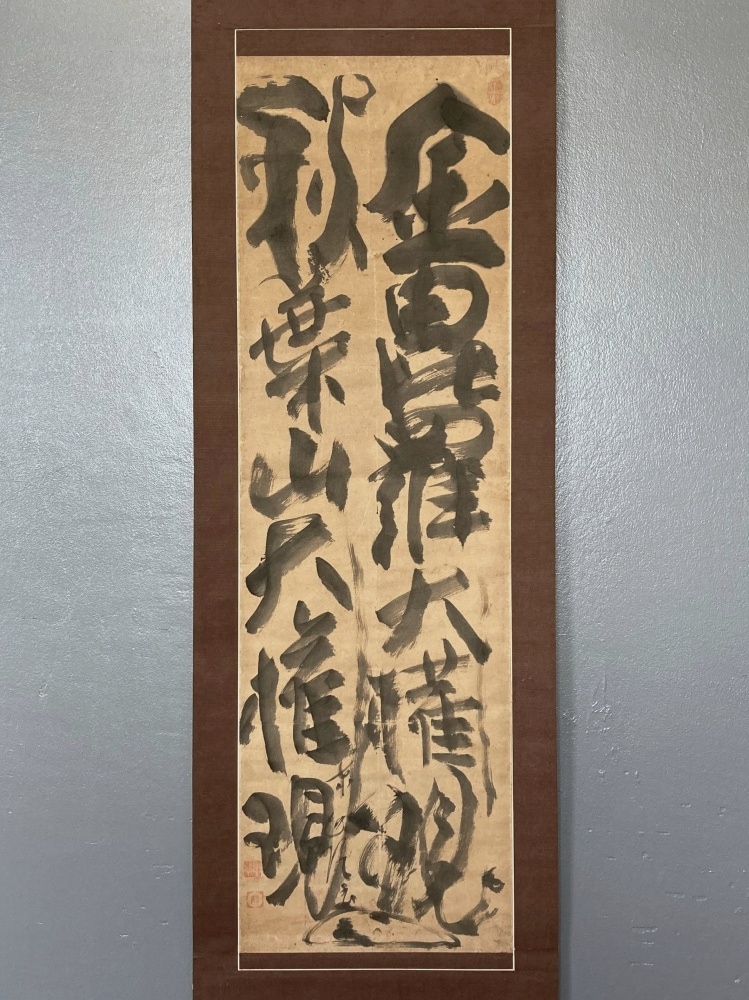 金毘羅大權現
秋葉山大權現